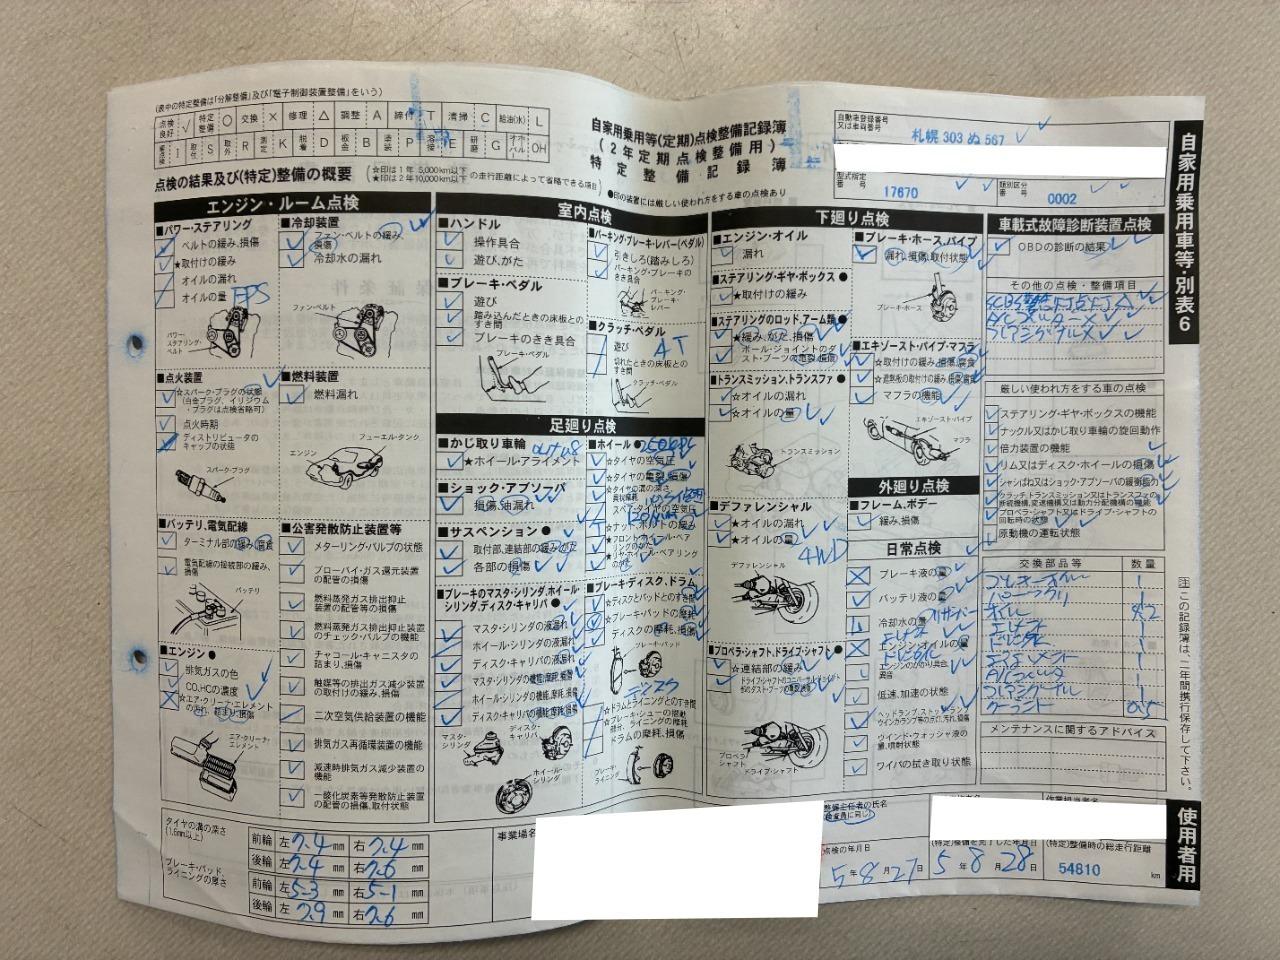 (表中の特定整備は「分解整備」及び「電子制御装置整備」をいう)
点検良好 ✓ 特定整備 ○ 交換 × 修理 △ 調整 A 締付 T 清掃 C 給油(水) L
I 取付 S 取外 R 測定 K 脱着 D 板金 B 塗装 P 溶接 E 研磨 G オーバホール OH
自家用乗用等(定期)点検整備記録簿
(2年定期点検整備用)
特定整備記録簿
自動車登録番号又は車両番号
札幌 303 ぬ 567
型式指定番号 17670 類別区分番号 0002
自家用乗用車等・別表6
点検の結果及び(特定)整備の概要
(☆印は1年 5,000km以下
★印は2年10,000km以下 の走行距離によって省略できる項目)
●印の装置には厳しい使われ方をする車の点検あり
エンジン・ルーム点検
■パワー・ステアリング
ベルトの緩み,損傷
★取付けの緩み
オイルの漏れ
オイルの量 EPS
パワー・ステアリング・ベルト
■冷却装置
ファン・ベルトの緩み,損傷
冷却水の漏れ
ファン・ベルト
■点火装置
☆スパーク・プラグの状態
(白金プラグ、イリジウム・プラグは点検省略可)
点火時期
ディストリビュータのキャップの状態
スパーク・プラグ
■燃料装置
燃料漏れ
フューエル・タンク
エンジン
■バッテリ,電気配線
ターミナル部の緩み,腐食
電気配線の接続部の緩み,損傷
バッテリ
■エンジン●
排気ガスの色
CO,HCの濃度
☆エア・クリーナ・エレメントの汚れ,詰まり,損傷
エア・クリーナ・エレメント
■公害発散防止装置等
メターリング・バルブの状態
ブローバイ・ガス還元装置の配管の損傷
燃料蒸発ガス排出抑止装置の配管等の損傷
燃料蒸発ガス排出抑止装置のチェック・バルブの機能
チャコール・キャニスタの詰まり,損傷
触媒等の排出ガス減少装置の取付けの緩み,損傷
二次空気供給装置の機能
排気ガス再循環装置の機能
減速時排気ガス減少装置の機能
一酸化炭素等発散防止装置の配管の損傷,取付状態
室内点検
■ハンドル
操作具合
遊び,がた
■ブレーキ・ペダル
遊び
踏み込んだときの床板とのすき間
ブレーキのきき具合
ブレーキ・ペダル
■パーキング・ブレーキ・レバー(ペダル)
引きしろ(踏みしろ)
パーキング・ブレーキのきき具合
パーキング・ブレーキ・レバー
■クラッチ・ペダル
遊び AT
切れたときの床板とのすき間
クラッチ・ペダル
足廻り点検
■かじ取り車輪
★ホイール・アライメント
■ショック・アブソーバ
損傷,油漏れ
■サスペンション●
取付部,連結部の緩み,がた
各部の損傷
■ホイール●
☆タイヤの空気圧
☆タイヤの亀裂,損傷
☆タイヤの溝の深さ,異状摩耗
スペア・タイヤの空気圧
☆ナット,ボルトの緩み
★フロント・ホイール・ベアリングのがた
★リヤ・ホイール・ベアリングのがた
■ブレーキのマスタ・シリンダ,ホイール・シリンダ,ディスク・キャリパ●
マスタ・シリンダの液漏れ
ホイール・シリンダの液漏れ
ディスク・キャリパの液漏れ
マスタ・シリンダの機能,摩耗,損傷
ホイール・シリンダの機能,摩耗,損傷
ディスク・キャリパの機能,摩耗,損傷
マスタ・シリンダ
ディスク・キャリパ
ホイール・シリンダ
■ブレーキ・ディスク,ドラム
☆ディスクとパッドとのすき間
☆ブレーキ・パッドの摩耗
ディスクの摩耗,損傷
ブレーキ・パッド
ディスク
☆ドラムとライニングとのすき間
☆ブレーキ・シューの摺動部分,ライニングの摩耗
ドラムの摩耗,損傷
ブレーキ・ライニング
下廻り点検
■エンジン・オイル
漏れ
■ステアリング・ギヤ・ボックス●
★取付けの緩み
■ステアリングのロッド,アーム類●
★緩み,がた,損傷
ボール・ジョイントのダスト・ブーツの亀裂,損傷
■トランスミッション,トランスファ●
☆オイルの漏れ
☆オイルの量
トランスミッション
■デファレンシャル
★オイルの漏れ
★オイルの量
4WD
デファレンシャル
■プロペラ・シャフト,ドライブ・シャフト●
☆連結部の緩み
ドライブ・シャフトのユニバーサル・ジョイント部のダスト・ブーツの亀裂,損傷
プロペラ・シャフト
ドライブ・シャフト
■ブレーキ・ホース,パイプ
漏れ,損傷,取付状態
ブレーキ・ホース
■エキゾースト・パイプ,マフラ
☆取付けの緩み,損傷,腐食
☆遮熱板の取付けの緩み,損傷,腐食
マフラの機能
エキゾースト・パイプ
マフラ
外廻り点検
■フレーム,ボデー
緩み,損傷
日常点検
ブレーキ液の量
バッテリ液の量
冷却水の量
エンジン・オイルの量
エンジンのかかり具合,異音
低速,加速の状態
ヘッドランプ,ストップランプ,ウインカランプ等の点灯,汚れ,損傷
ウインド・ウォッシャ液の量,噴射状態
ワイパの拭き取り状態
車載式故障診断装置点検
OBDの診断の結果
その他の点検・整備項目
厳しい使われ方をする車の点検
ステアリング・ギヤ・ボックスの機能
ナックル又はかじ取り車輪の旋回動作
倍力装置の機能
リム又はディスク・ホイールの損傷
シャシばね又はショック・アブソーバの緩衝能力
クラッチ,トランスミッション又はトランスファの断続機構,変速機構又は動力分配機構の機能
プロペラ・シャフト又はドライブ・シャフトの回転時の状態
原動機の運転状態
交換部品等 数量
ブレーキオイル 1
オイル 4.2
エレメント 1
クーラント 0.5
メンテナンスに関するアドバイス
注 この記録簿は、二年間携行保存して下さい。
使用者用
タイヤの溝の深さ(1.6mm以上)
前輪 左 7.4 mm 右 7.4 mm
後輪 左 7.4 mm 右 7.6 mm
ブレーキ・パッド,ライニングの厚さ
前輪 左 5.3 mm 右 5.1 mm
後輪 左 7.9 mm 右 7.6 mm
事業場名
整備主任者の氏名
点検の年月日 5年8月27日
(特定)整備を完了した年月日 5年8月28日
(特定)整備時の総走行距離 54810 km